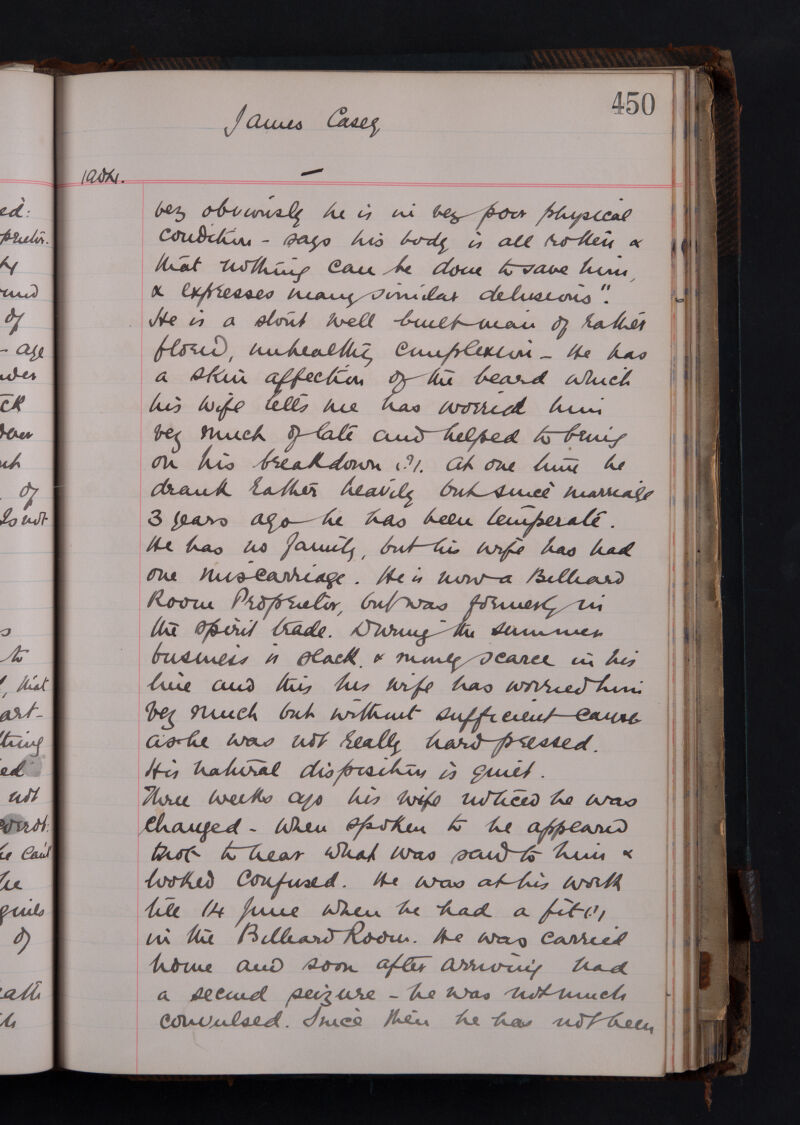 450
James Casey
very obviously he is in very poor physical
condition - says his body is all rotten &
that nothing can be done to save him,
& expresses many similar delusions".
He is a stout well built man of rather
florid, unhealthy complexion - He has
a skin affection of the beard which
his wife tells me has worried him
very much of late and helped to bring
on his breakdown (?). At one time he
drank rather heavily but since marriage
3 years ago he has been temperate.
He has no family, but his wife has had
one miscarriage. He is now a Billiard
Room Proprietor, but was formerly in
the spirit trade. During the summer
business is slack & money scarce in his
line and this his wife has worried him
very much but without sufficient cause
as he was not really hard pressed.
His natural disposition is quiet.
Three weeks ago his wife noticed he was
changed - when spoken to he appeared
not to hear what was said to him &
looked confused. He was at his work
till 14 June when he had a fit (?)
in the Billiard Room. He was carried
home and soon after arriving had
a second seizure - he was not much
convulsed. Since then he has not been